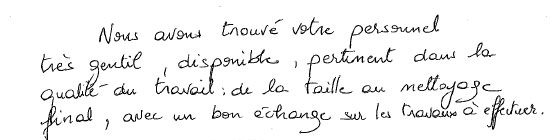 Nous avons trouvé votre personnel
très gentil, disponible, pertinent dans la
qualité du travail : de la taille au nettoyage
final, avec un bon échange sur les travaux à effectuer.